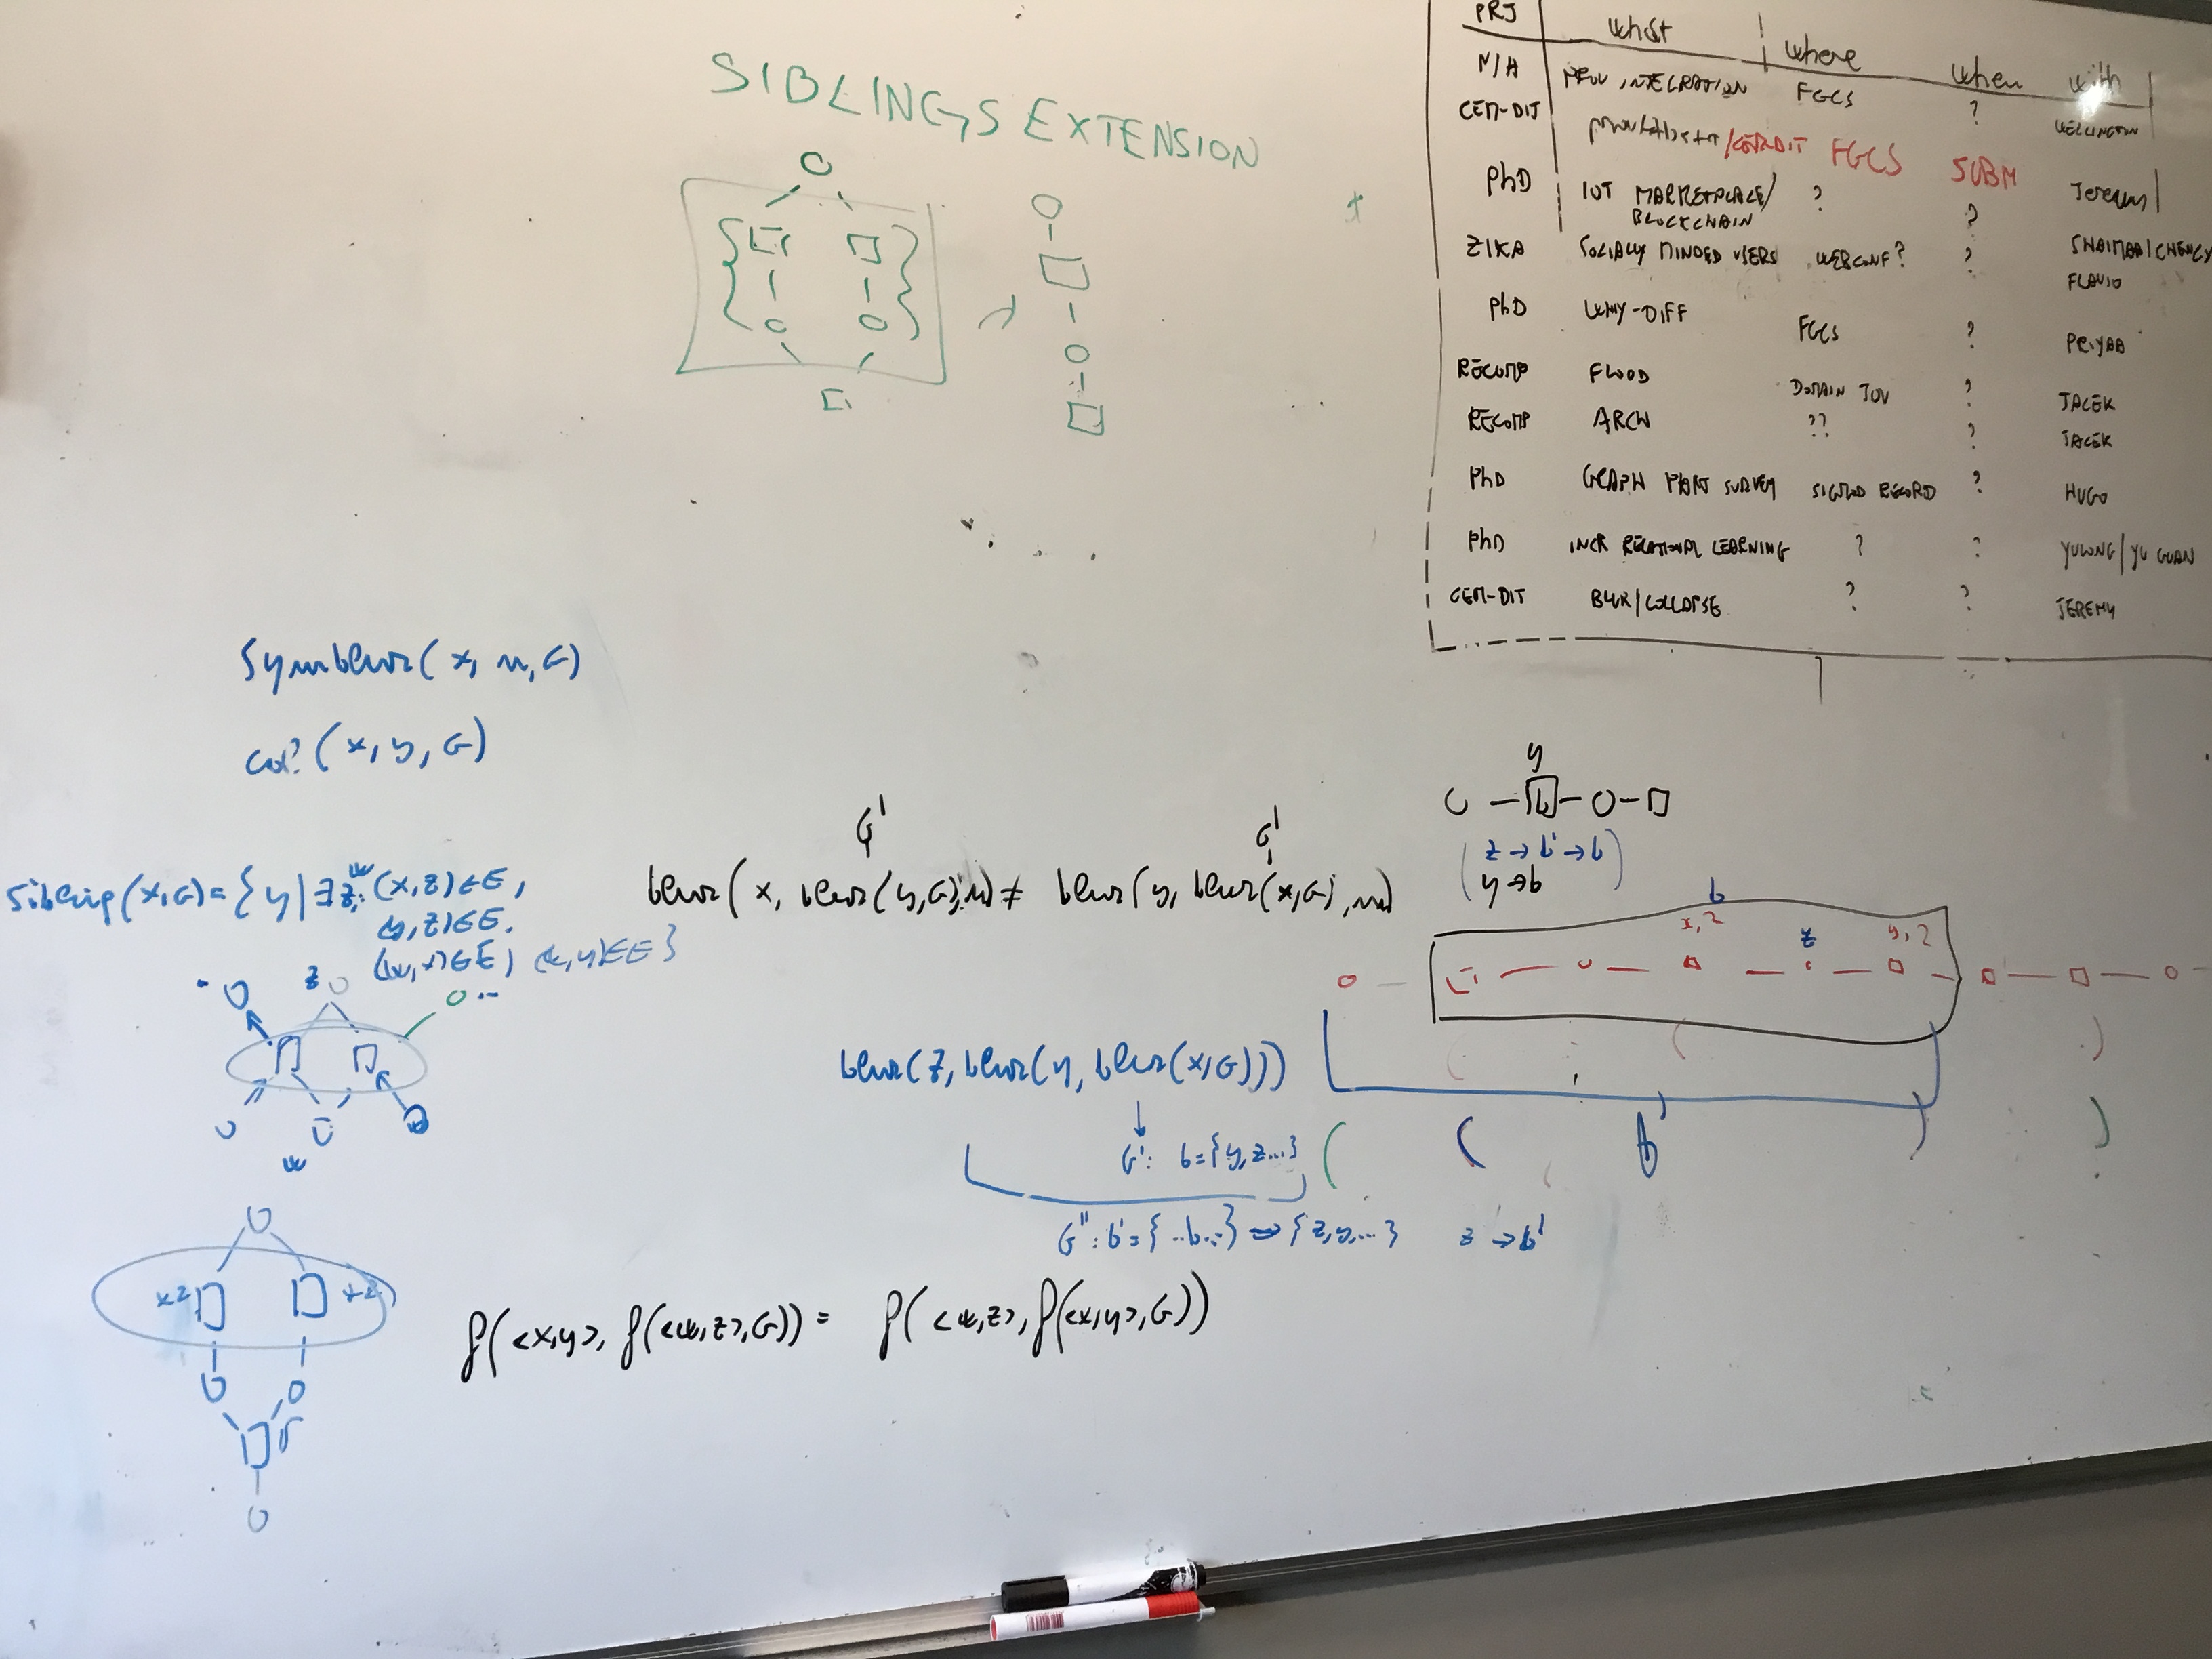 SIBLINGS EXTENSION
PRJ What where when with
N/A PROV INTEGRATION FGCS ? WELLINGTON
CEM-DIT /CEMDIT FGCS SUBM Jeremy
PhD IOT MARKETPLACE/ BLOCKCHAIN ? ?
ZIKA SOCIALLY MINDED USERS WEBCONF? ? SHAIMAA/CHENGY
FLAVIO
PhD WHY-DIFF FGCS ? PRIYAA
RECOMP FLOOD DOMAIN JOU ? JACEK
RECOMP ARCH ?? ? JACEK
PhD GRAPH PART SURVEY SIGMOD RECORD ? HUGO
PhD INCR RELATIONAL LEARNING ? ? YULONG/YU GUAN
CEM-DIT BLUR/COLLAPSE ? ? JEREMY
Symblur(x, n, G)
col?(x, y, G)
y
b
G' G'
blur(x, blur(y,G),n) ≠ blur(y, blur(x,G),n)
z → b' → b
y → b
Sibling(x,G)={y|∃z,w (x,z)∈E,
(y,z)∈E,
(w,x)∈E, (w,y)∈E}
b
x,2 z y,2
z
w
blur(z, blur(y, blur(x,G)))
G': b={y,z...}
b'
G'': b'={..b...} ⇒ {z,y,...} z → b'
x2 x2
f(<x,y>, f(<w,z>,G)) = f(<w,z>, f(<x,y>,G))